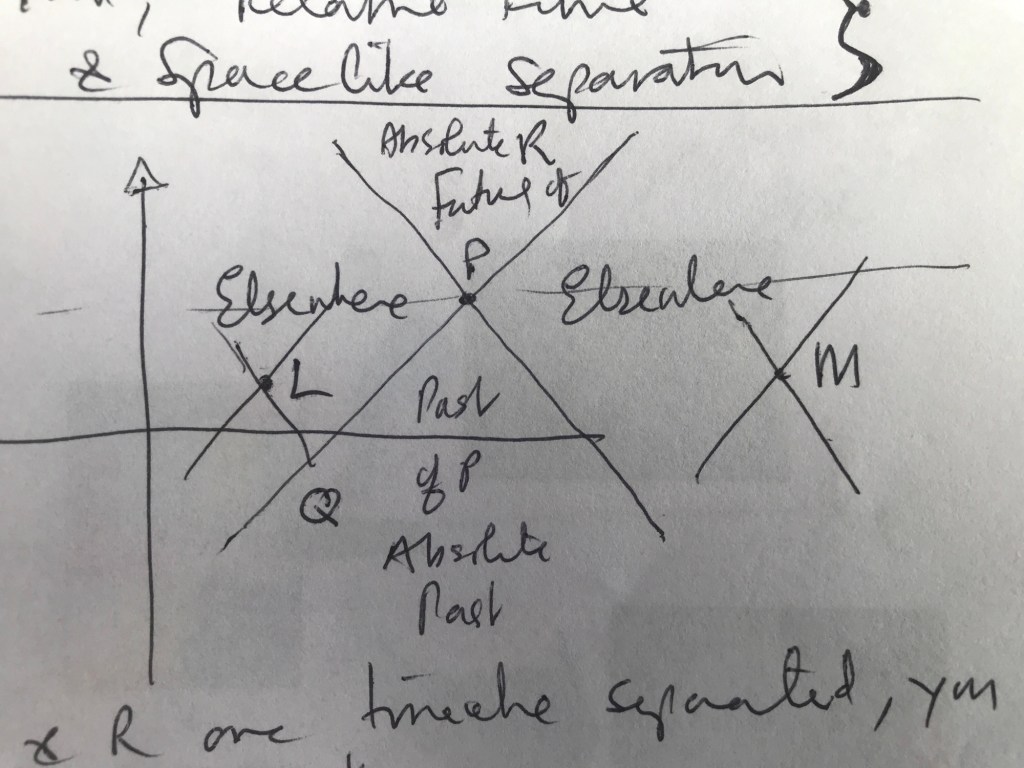 Relative time
& Spacelike separation
Absolute R
Future of
P
Elsewhere Elsewhere
L M
Past
of P
Q
Absolute
Past
& R are timelike separated, you